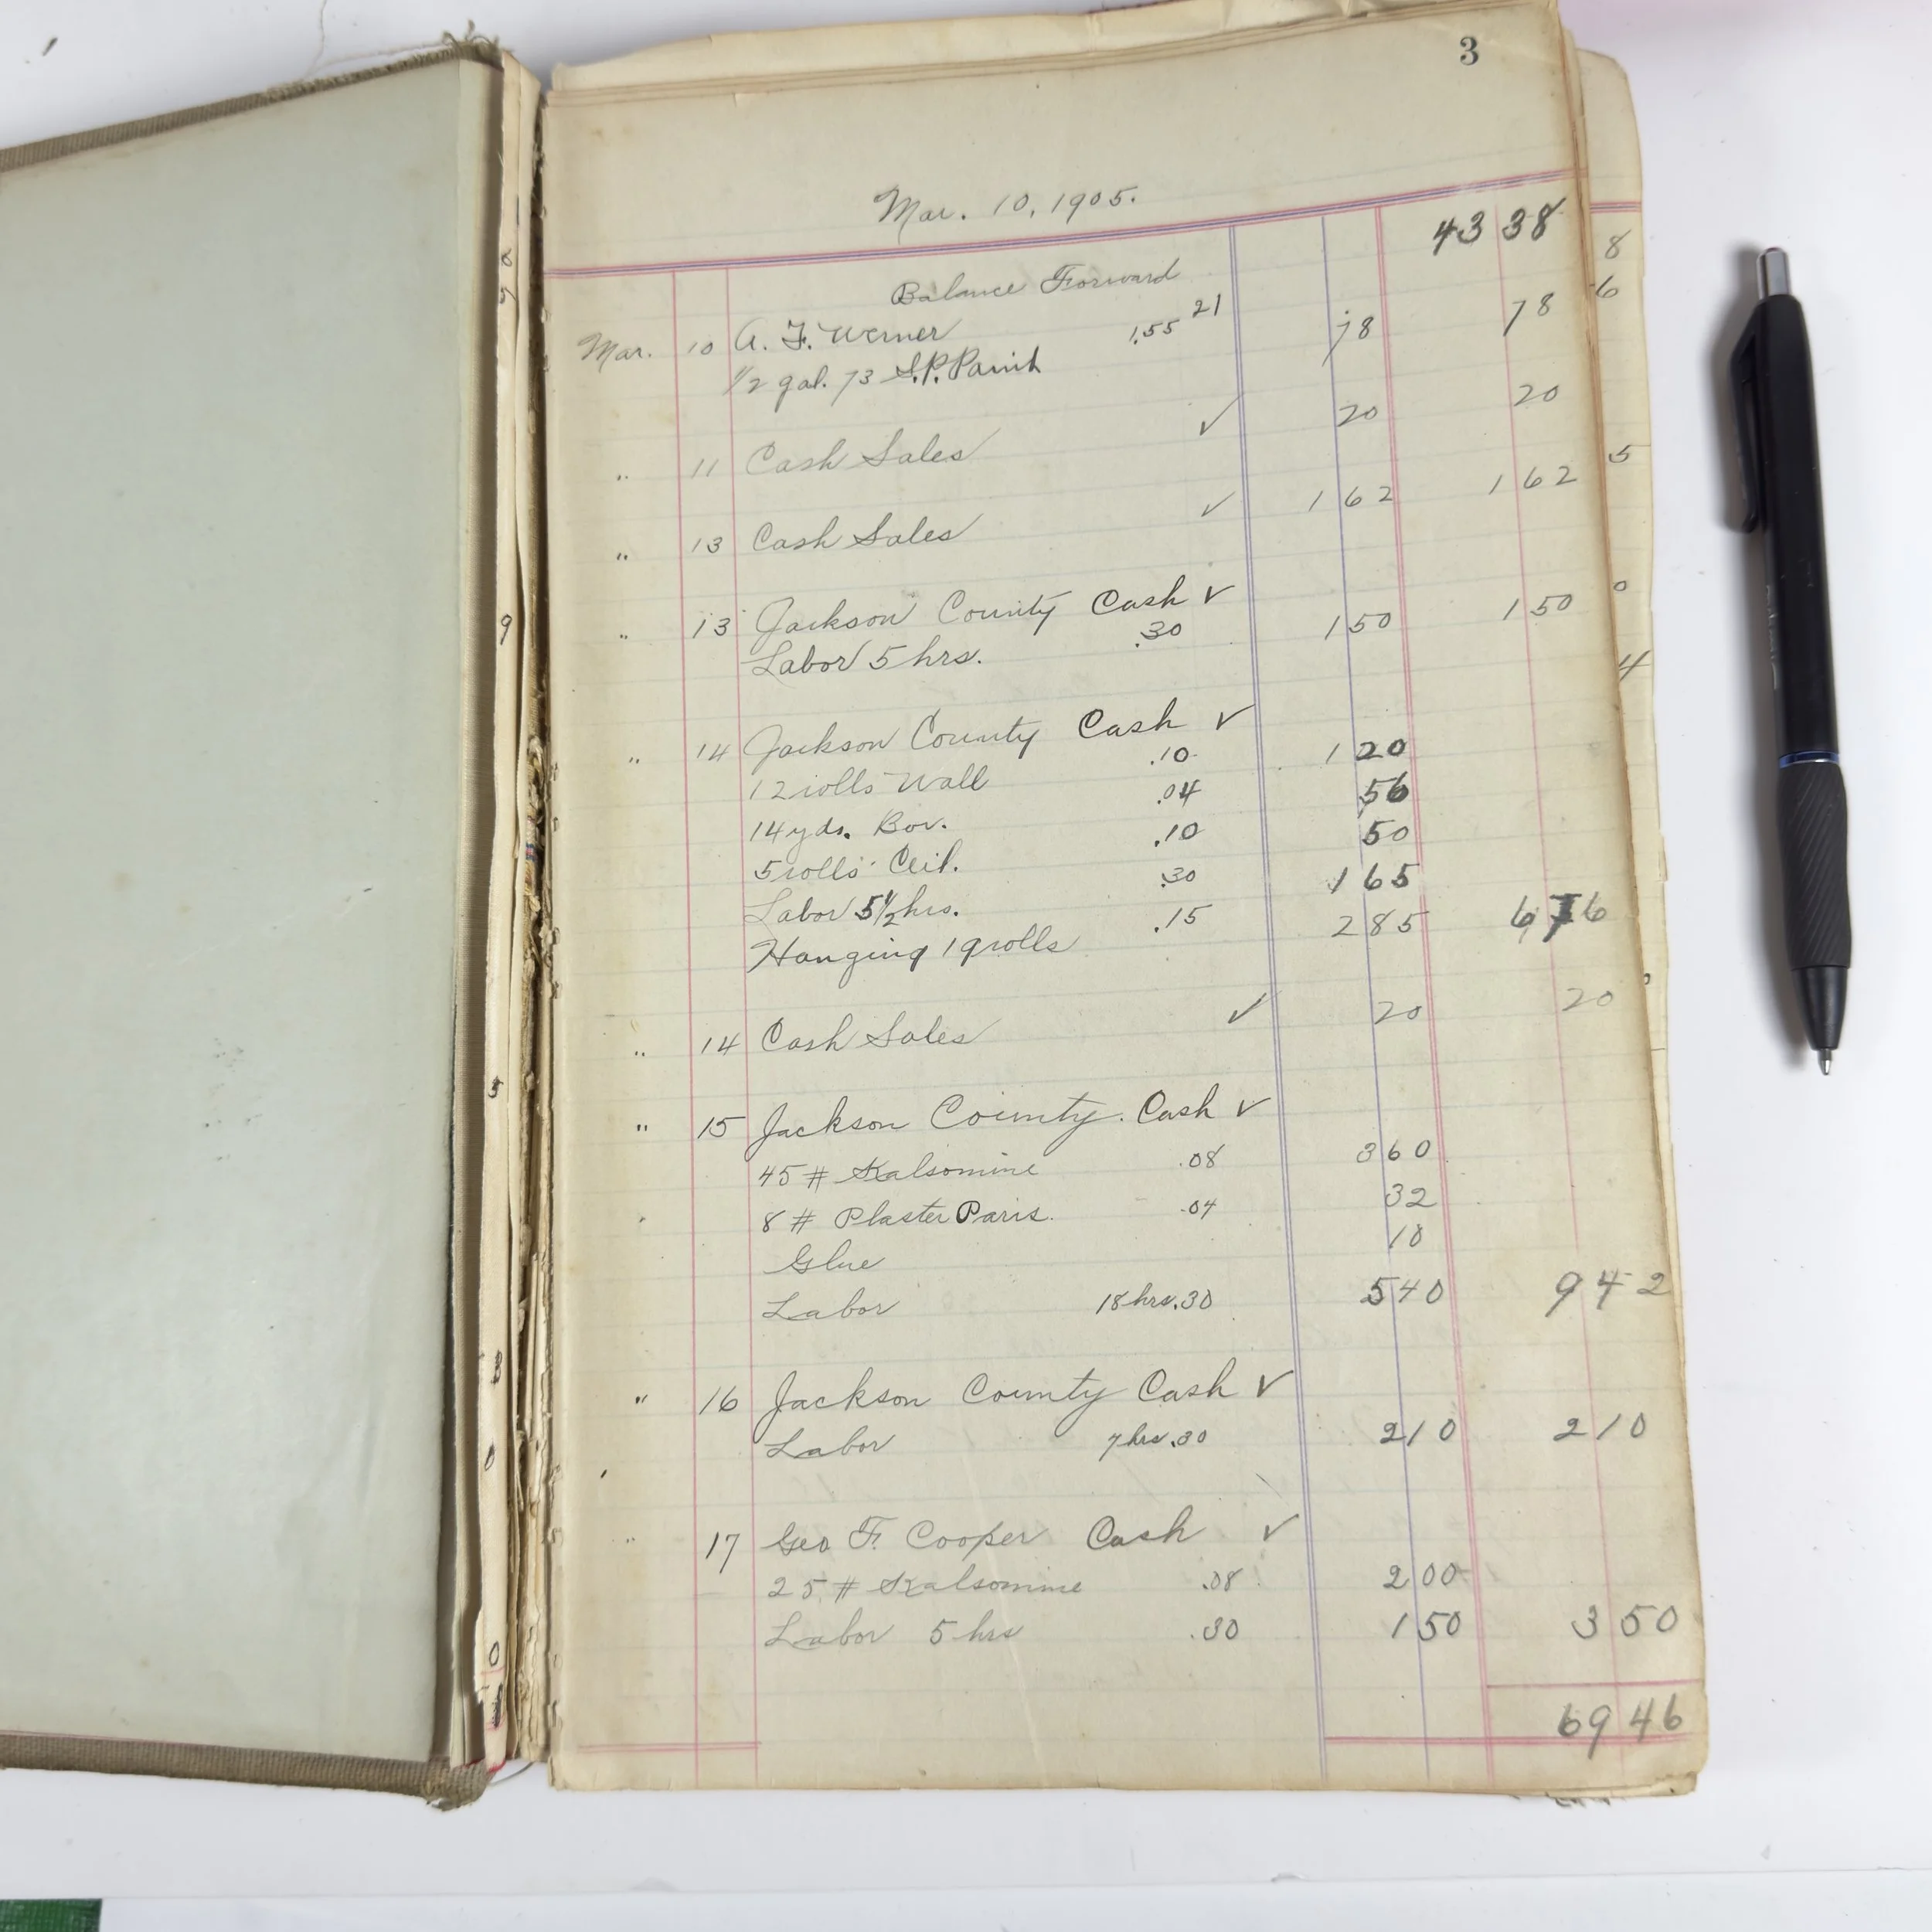 3
Mar. 10, 1905.
Balance Forward 43 38
Mar. 10 A. F. Werner 1.55 21 78 78
1/2 gal. 73 S.P. Paint
" 11 Cash Sales ✓ 20 20
" 13 Cash Sales ✓ 1 62 1 62
" 13 Jackson County Cash ✓
Labor 5 hrs. .30 1 50 1 50
" 14 Jackson County Cash ✓
12 rolls Wall .10 1 20
14 yds. Bor. .04 56
5 rolls Ceil. .10 50
Labor 5 1/2 hrs. .30 1 65
Hanging 19 rolls .15 2 85 6 76
" 14 Cash Sales ✓ 20 20
" 15 Jackson County. Cash ✓
45 # Kalsomine .08 3 60
8 # Plaster Paris. .04 32
Glue 10
Labor 18 hrs. .30 5 40 9 42
" 16 Jackson County Cash ✓
Labor 7 hrs. .30 2 10 2 10
" 17 Geo F. Cooper Cash ✓
25 # Kalsomine .08 2 00
Labor 5 hrs .30 1 50 3 50
69 46